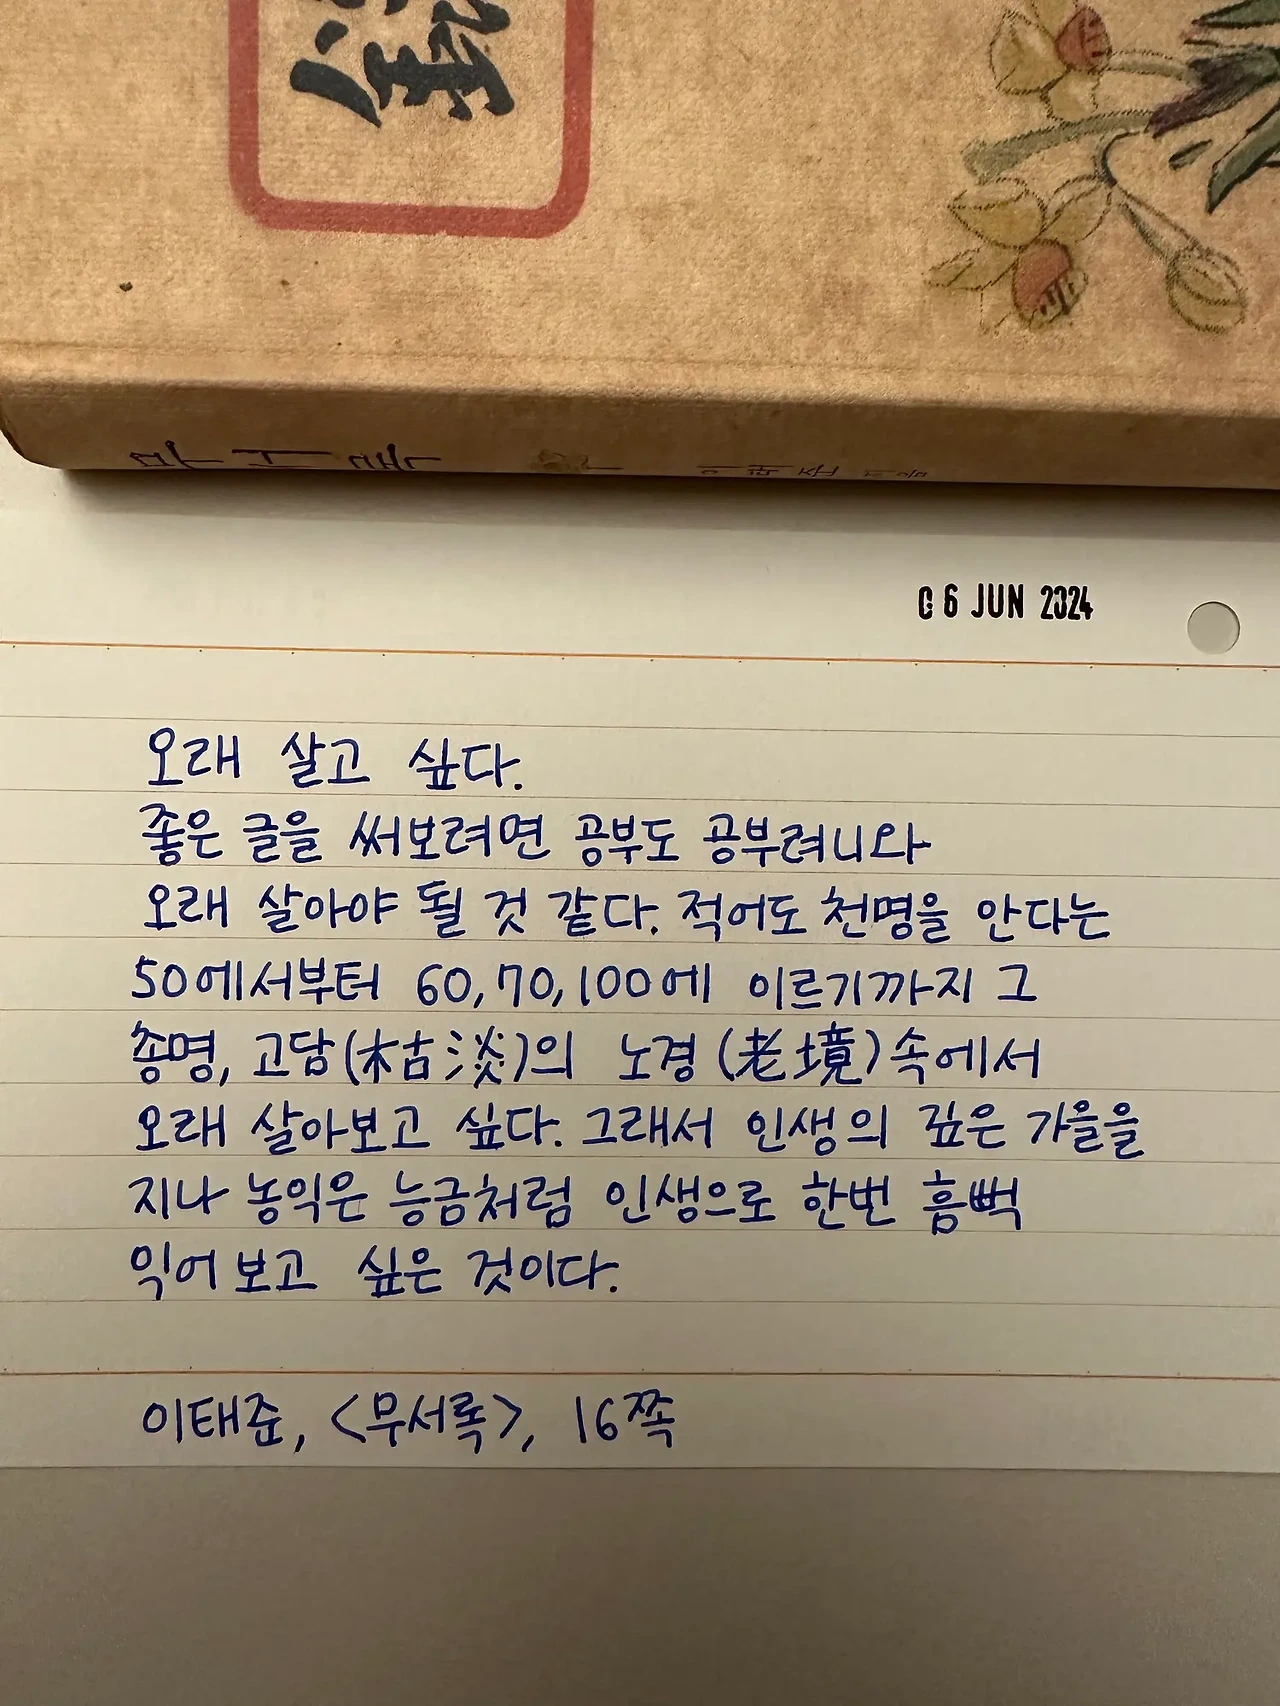 06 JUN 2024
오래 살고 싶다.
좋은 글을 써보려면 공부도 공부려니와
오래 살아야 될 것 같다. 적어도 천명을 안다는
50에서부터 60, 70, 100에 이르기까지 그
총명, 고담(枯淡)의 노경(老境) 속에서
오래 살아보고 싶다. 그래서 인생의 깊은 가을을
지나 농익은 능금처럼 인생으로 한번 흠뻑
익어 보고 싶은 것이다.
이태준, <무서록>, 16쪽